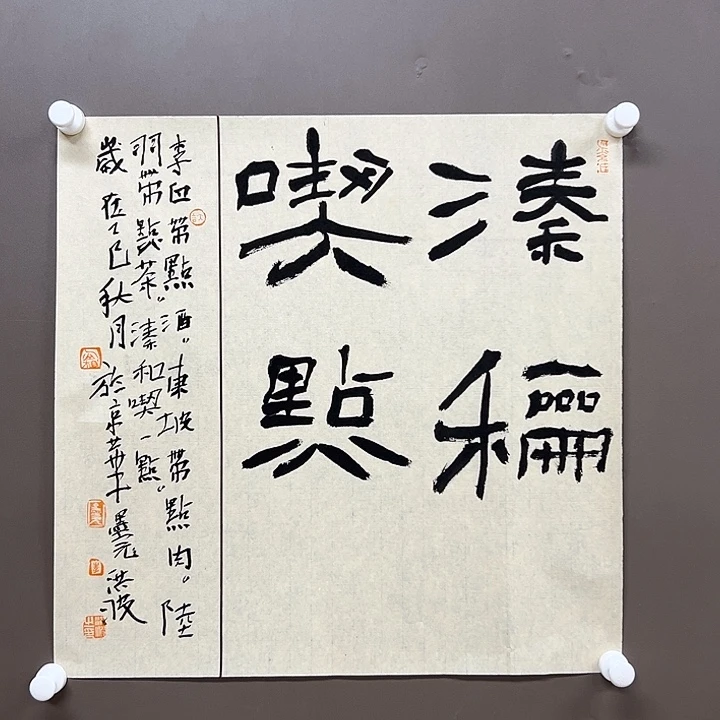 溱龢
喫點
李白帶點酒。東坡帶點肉。陸
羽帶點茶。溱和喫一點。
歲在乙巳秋月於京華墨元洪波